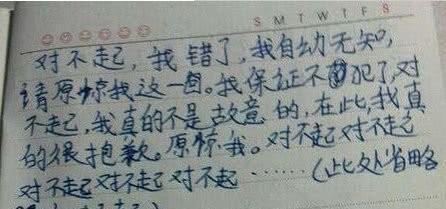 S M T W T F S
对不起，我错了，我自幼无知，
请原惊我这一回。我保证不犯了，对
不起，我真的不是故意的，在此，我真
的很抱歉。原惊我。对不起对不起
对不起对不起对不起……（此处省略